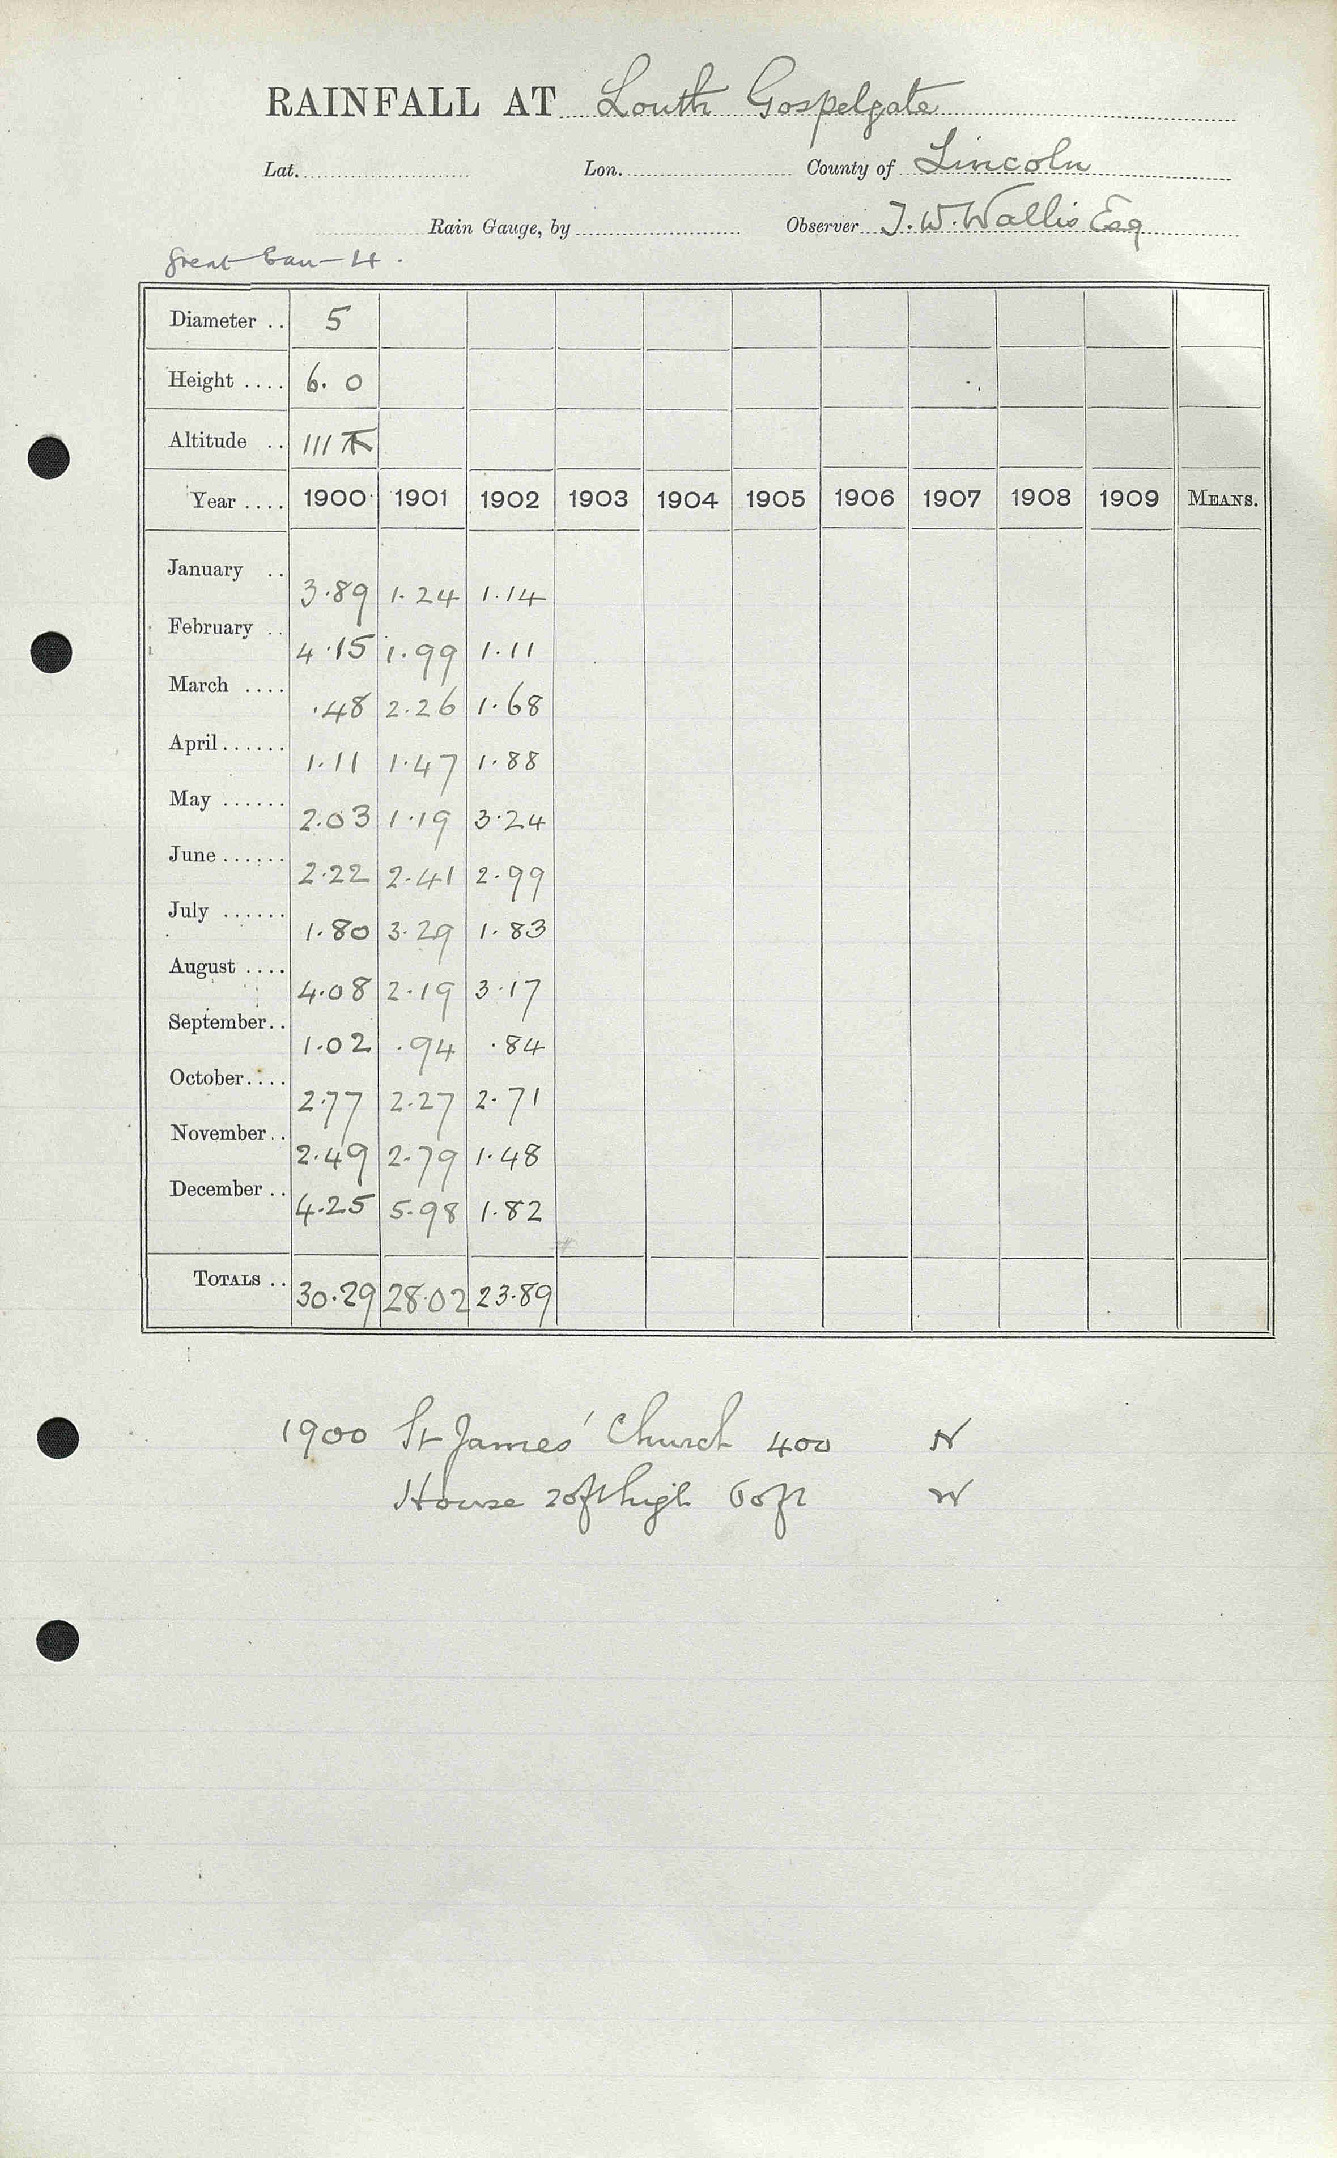 RAINFALL AT Louth Gospelgate
Lat. Lon. County of Lincoln
Rain Gauge, by Observer T. W. Wallis Esq
Great
Diameter .. 5
Height .... 6. 0
Altitude .. 111
Year .... 1900 1901 1902 1903 1904 1905 1906 1907 1908 1909 MEANS.
January .. 3.89 1.24 1.14
February .. 4.15 1.99 1.11
March .... .48 2.26 1.68
April ...... 1.11 1.47 1.88
May ...... 2.03 1.19 3.24
June ...... 2.22 2.41 2.99
July ...... 1.80 3.29 1.83
August .... 4.08 2.19 3.17
September.. 1.02 .94 .84
October.... 2.77 2.27 2.71
November.. 2.49 2.79 1.48
December .. 4.25 5.98 1.82
TOTALS .. 30.29 28.02 23.89
1900 St James' Church 400 N
House 20ft high 60ft W